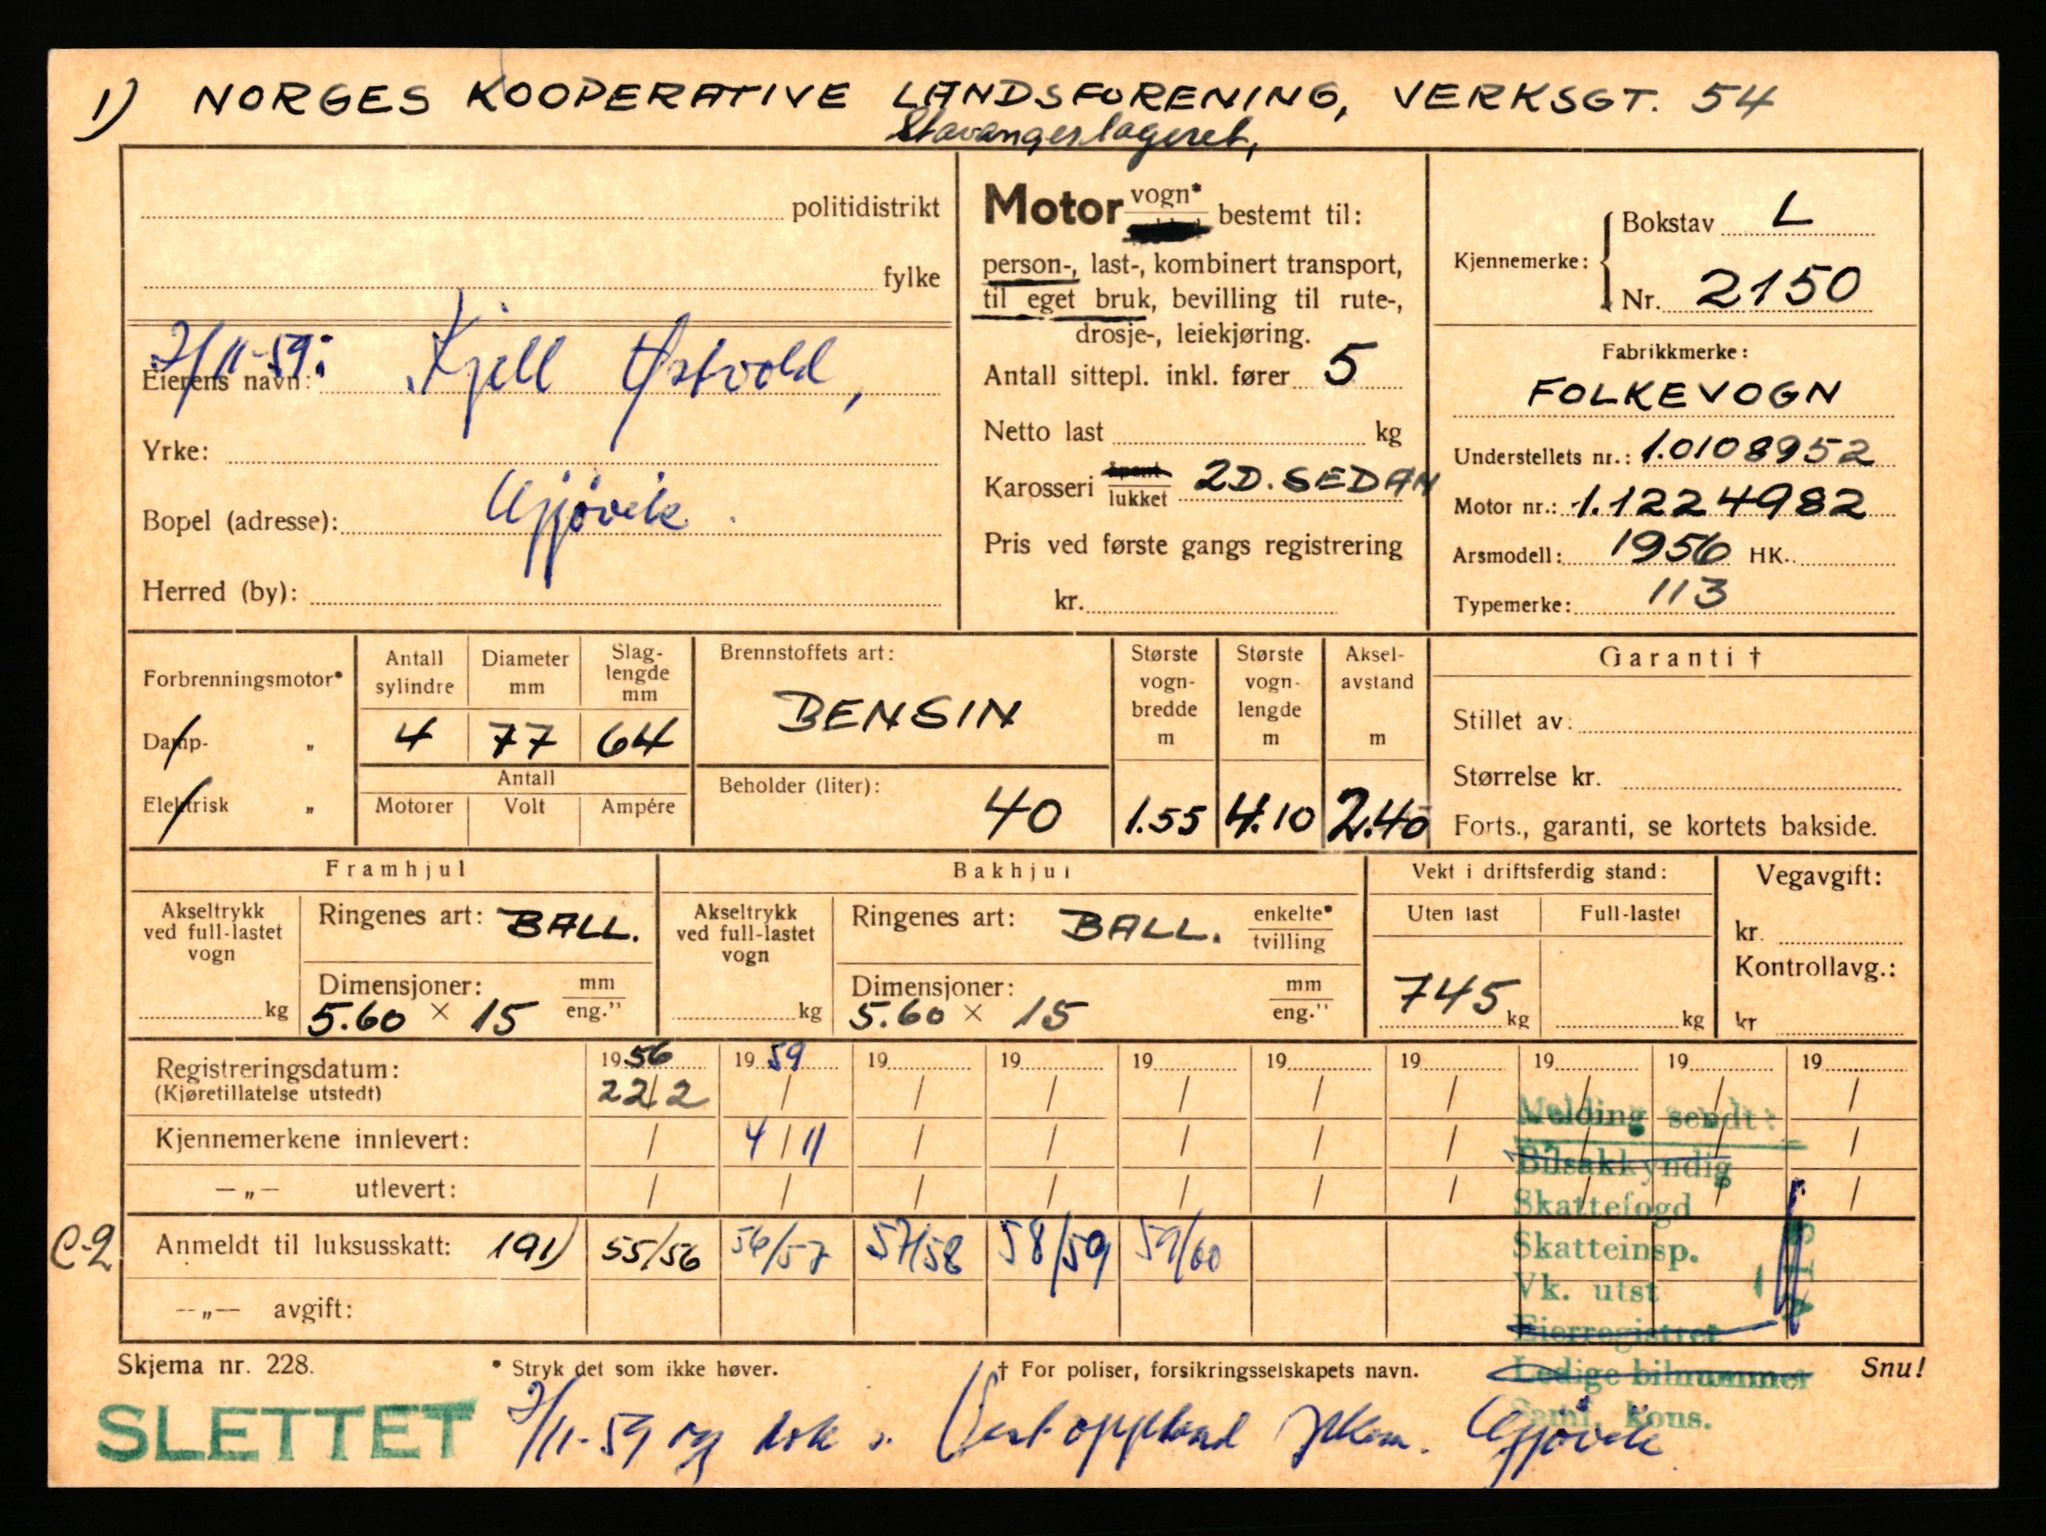 1) NORGES KOOPERATIVE LANDSFORENING, VERKSGT. 54
Stavangerlageret,
politidistrikt
fylke
7/11-59: Kjell Østvold,
Eierens navn:
Yrke:
Bopel (adresse): Gjøvik
Herred (by):
Motor vogn* bestemt til:
person-, last-, kombinert transport,
til eget bruk, bevilling til rute-,
drosje-, leiekjøring.
Antall sittepl. inkl. fører 5
Netto last kg
Karosseri åpent lukket 2D. SEDAN
Pris ved første gangs registrering
kr.
Kjennemerke: Bokstav L
Nr. 2150
Fabrikkmerke:
FOLKEVOGN
Understellets nr.: 1.0108952
Motor nr.: 1.1224982
Arsmodell: 1956 HK.
Typemerke: 113
Forbrenningsmotor*
Damp- „
Elektrisk „
Antall sylindre
4
Diameter mm
77
Slag-lengde mm
64
Antall
Motorer Volt Ampére
Brennstoffets art:
BENSIN
Beholder (liter):
40
Største vogn-bredde m
1.55
Største vogn-lengde m
4.10
Aksel-avstand m
2.40
Garanti †
Stillet av:
Størrelse kr.
Forts., garanti, se kortets bakside.
Framhjul
Akseltrykk ved full-lastet vogn
kg
Ringenes art: BALL.
Dimensjoner: mm eng."
5.60 × 15
Bakhjul
Akseltrykk ved full-lastet vogn
kg
Ringenes art: BALL. enkelte* tvilling
Dimensjoner: mm eng."
5.60 × 15
Vekt i driftsferdig stand:
Uten last Full-lastet
745 kg kg
Vegavgift:
kr.
Kontrollavg.:
kr
Registreringsdatum: 1956 1959 19 19 19 19 19 19 19 19
(Kjøretillatelse utstedt) 22/2 / / / / / / / / /
Kjennemerkene innlevert: / 4/11 / / / / / / / /
—„— utlevert: / / / / / / / / / /
C-2 Anmeldt til luksusskatt: 191) 55/56 56/57 57/58 58/59 59/60
—„— avgift:
Melding sendt:
Bilsakkyndig
Skattefogd
Skatteinsp.
Vk. utst
Eierregistret
Ledige bilnummer
Saml. kons.
Skjema nr. 228. * Stryk det som ikke høver. † For poliser, forsikringsselskapets navn. Snu!
SLETTET 7/11-59 og dok s. Vestoppland Gjøvik